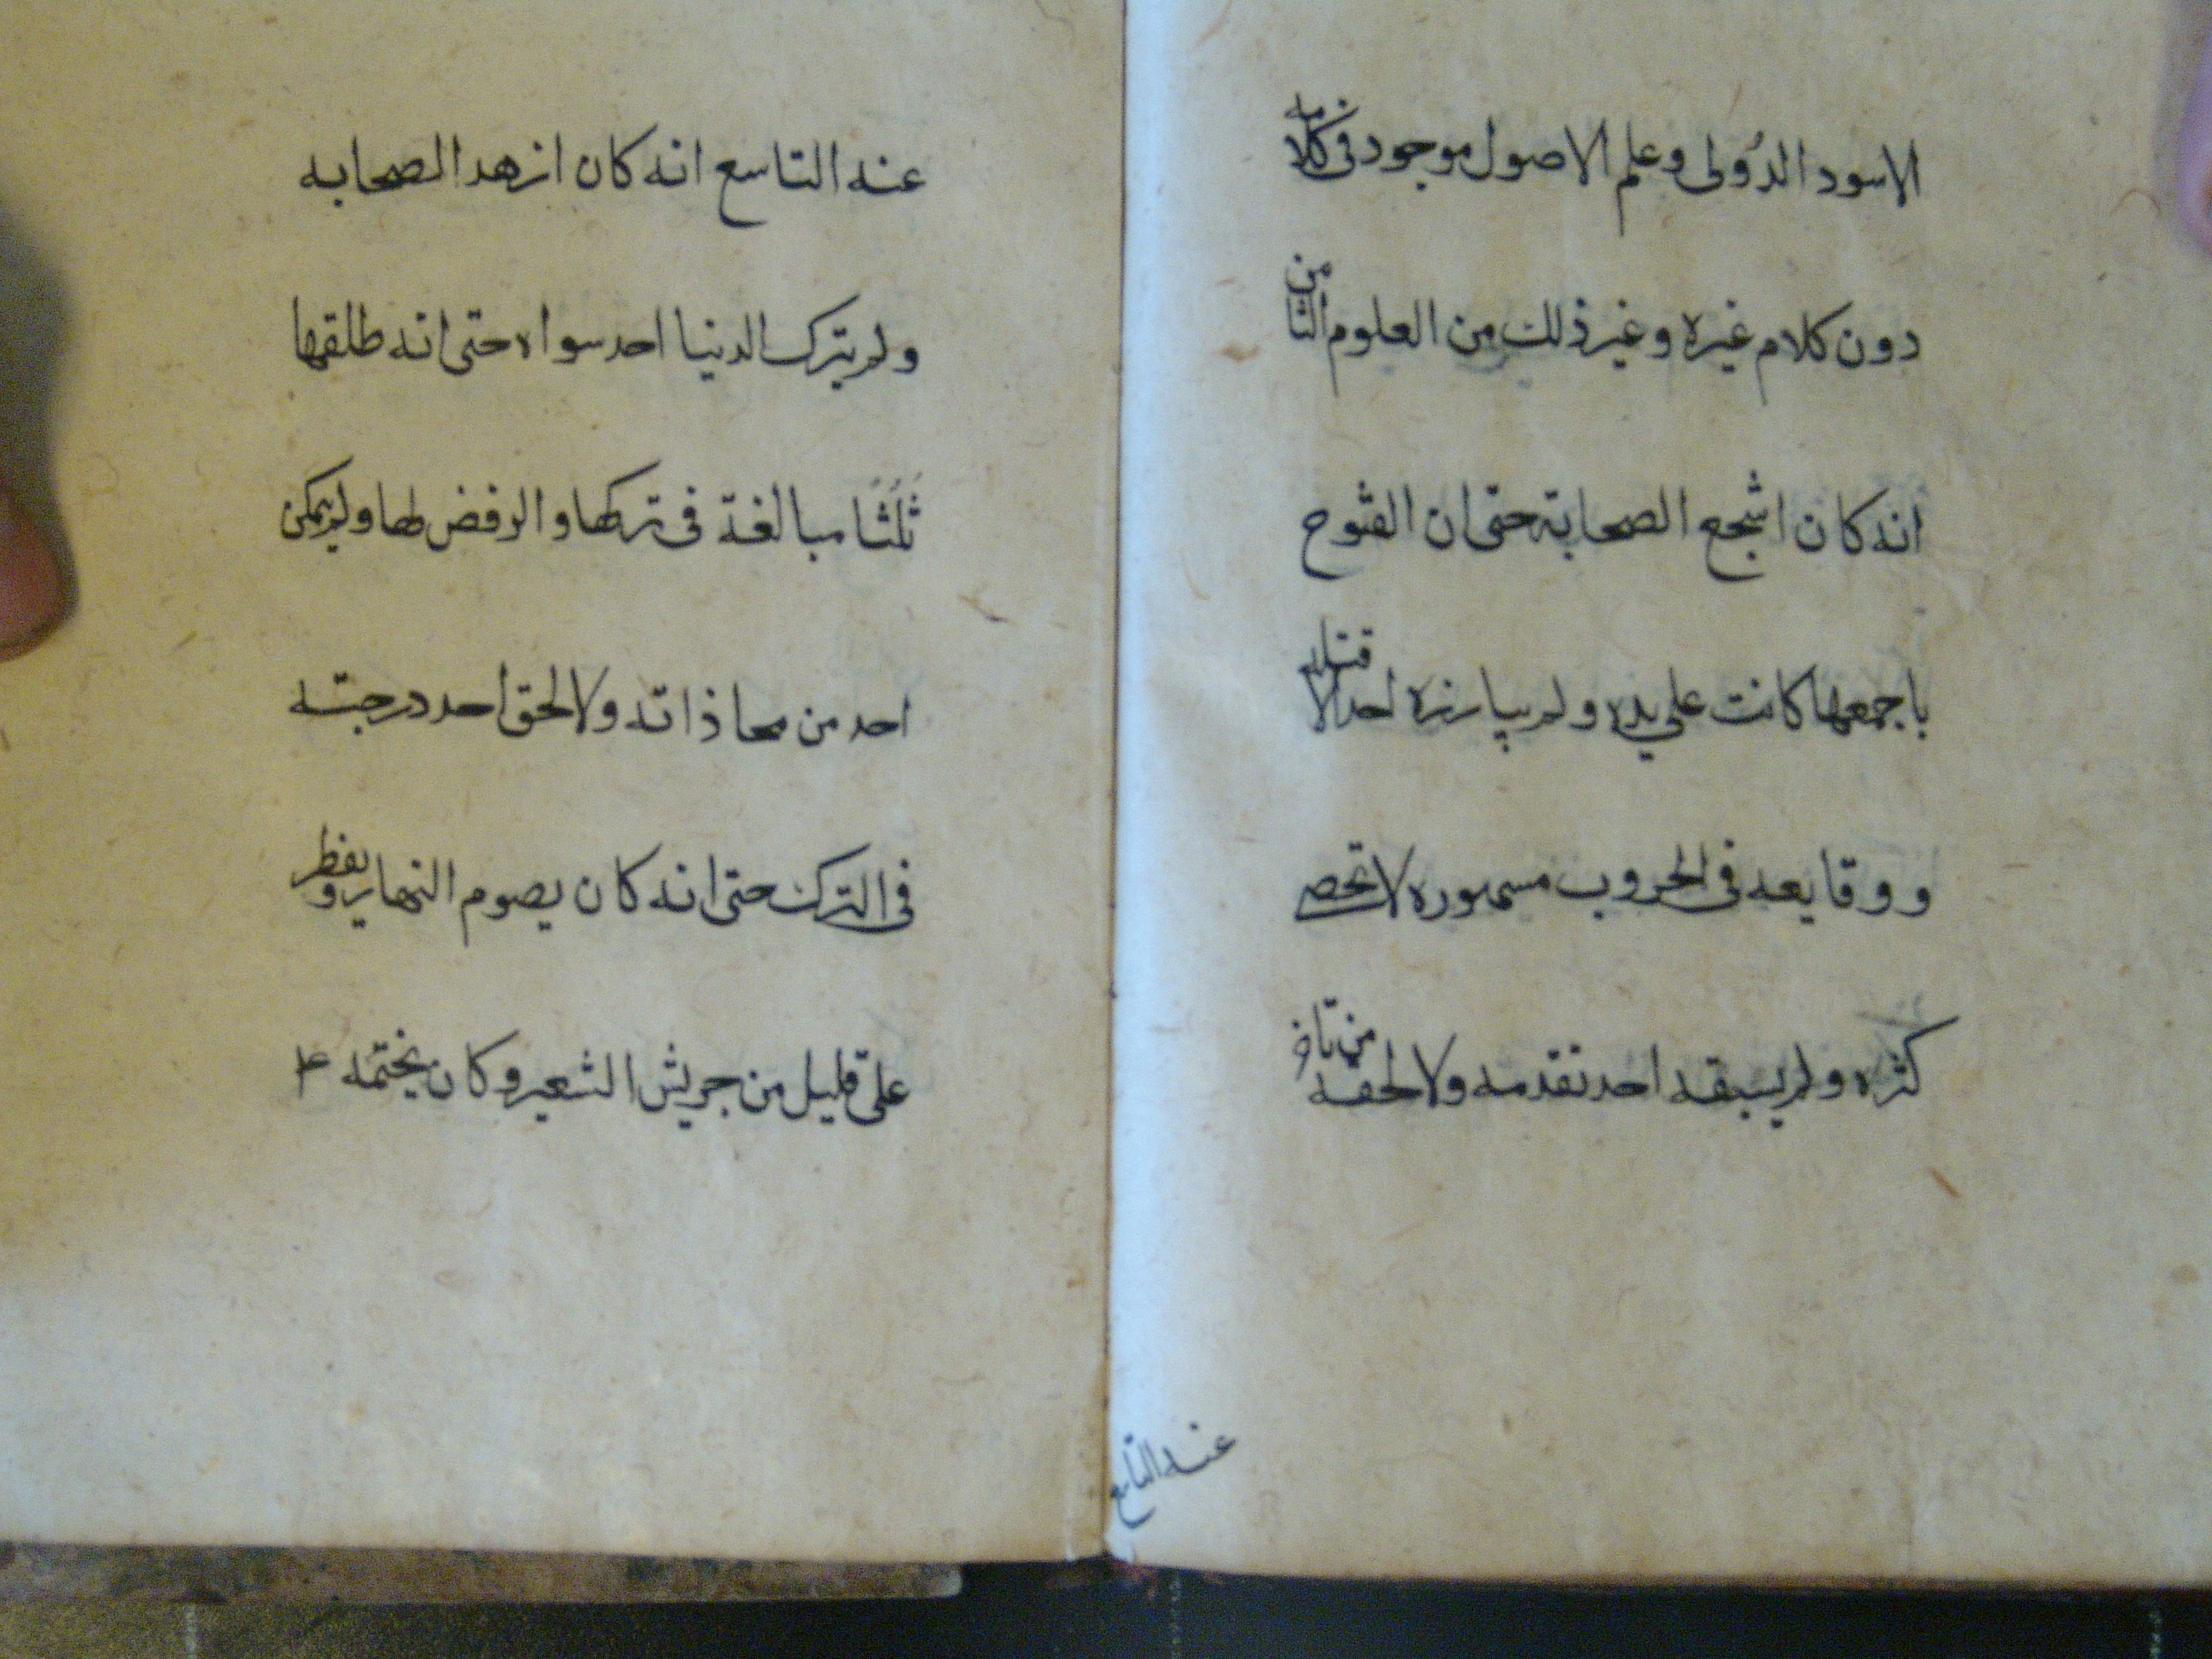 الاسود الدُولى وعلم الاصول موجود فى كلامه
دون كلام غيره وغير ذلك من العلوم الثامن
انه كان اشجع الصحابة حتى ان الفتوح
باجمعها كانت على يده ولم يبارزه احد الا قتله
ووقايعه فى الحروب مشهوره لا تحصى
كثره ولم يسبقه احد تقدمه ولا لحقه من تاخر
عنه التاسع
عنه التاسع انه كان ازهد الصحابه
ولم يترك الدنيا احد سواه حتى انه طلقها
ثَلثًا مبالغة فى تركها والرفض لها ولم يتمكن
احد من محاذاته ولا لحق احد درجته
فى الترك حتى انه كان يصوم النهار ويفطر
على قليل من جريش الشعير وكان يختمه